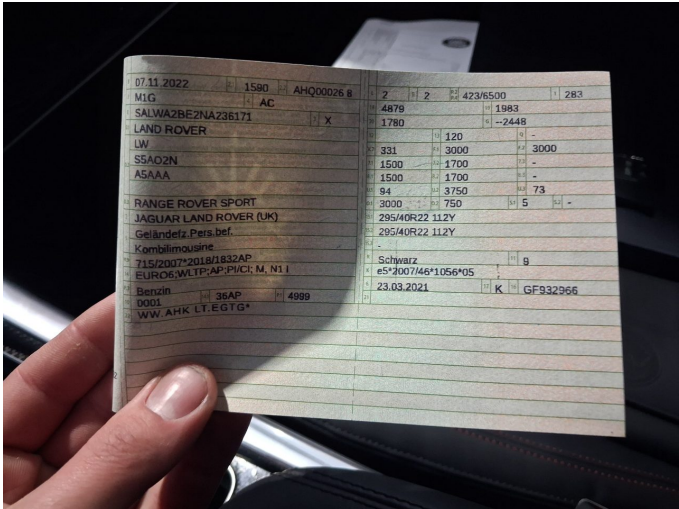 07.11.2022 1590 AHQ00026 8
M1G AC
SALWA2BE2NA236171 X
LAND ROVER
LW
S5AO2N
A5AAA
RANGE ROVER SPORT
JAGUAR LAND ROVER (UK)
Geländefz.Pers.bef.
Kombilimousine
715/2007*2018/1832AP
EURO6;WLTP;AP;PI/CI; M, N1 I
Benzin
0001 36AP 4999
WW. AHK LT.EGTG*
2 2 423/6500 283
4879 1983
1780 --2448
120 -
331 3000 3000
1500 1700 -
1500 1700 -
94 3750 73
3000 750 5 -
295/40R22 112Y
295/40R22 112Y
-
Schwarz 9
e5*2007/46*1056*05
23.03.2021 K GF932966